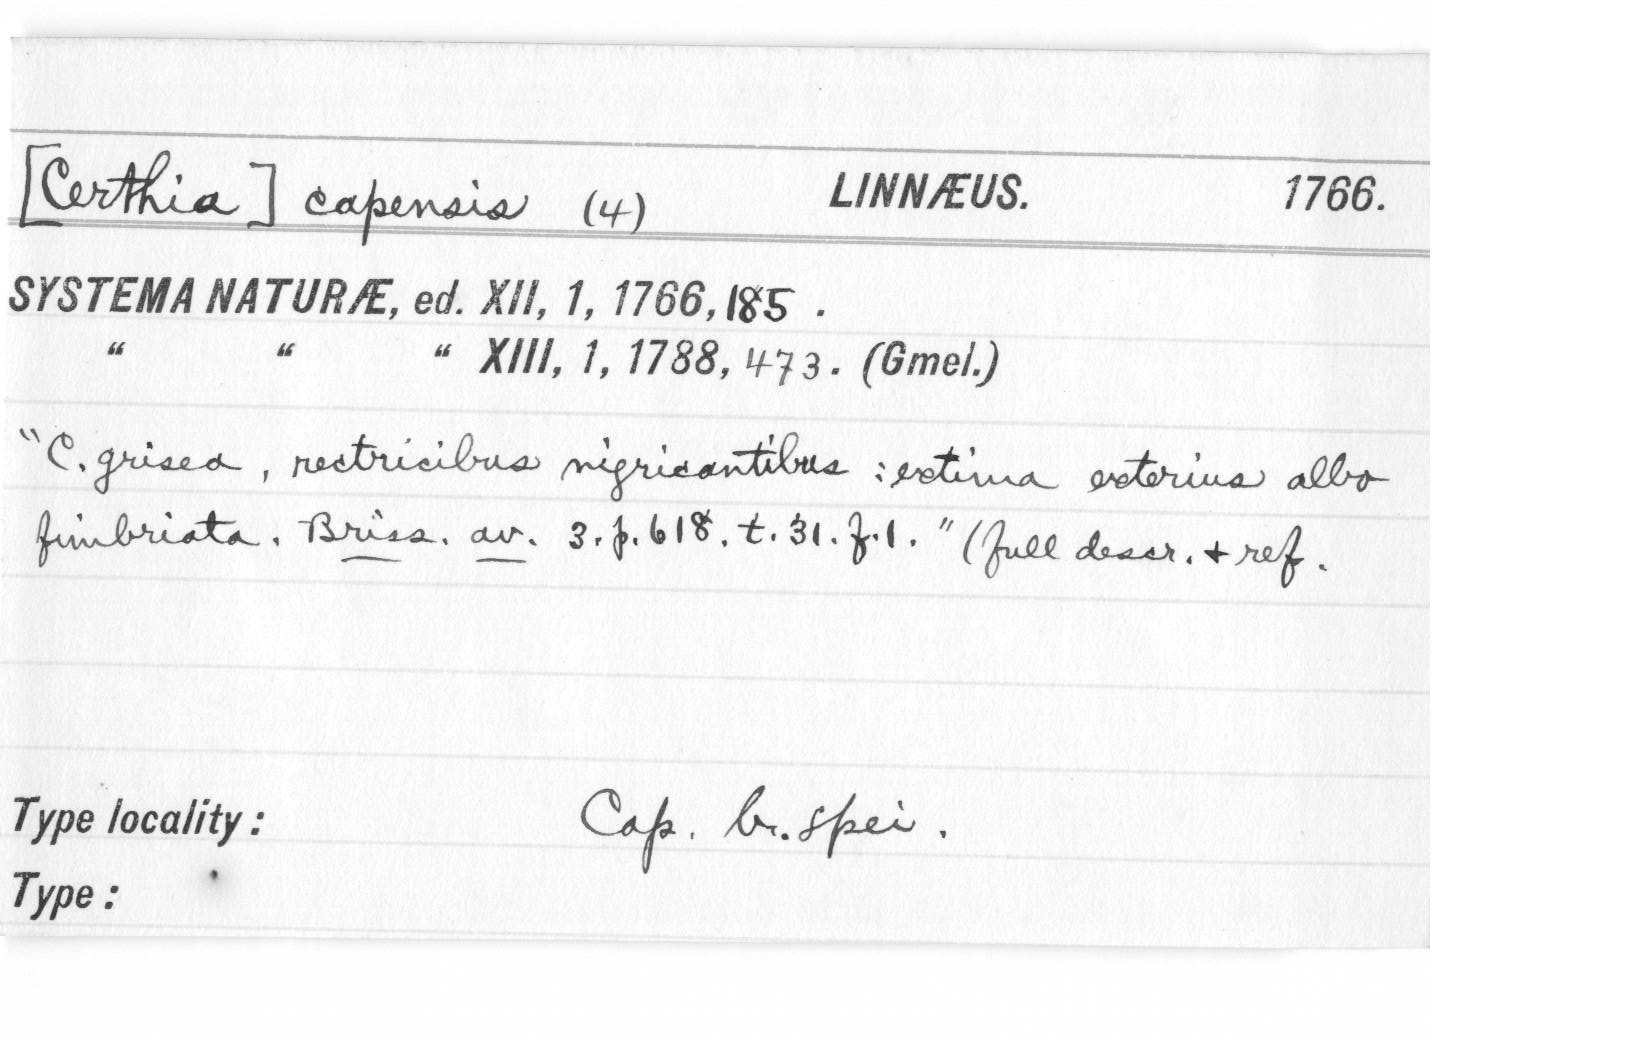 [Certhia] capensis (4) LINNÆUS. 1766.
SYSTEMA NATURÆ, ed. XII, 1, 1766, 185 .
“ “ “ XIII, 1, 1788, 473. (Gmel.)
"C. grisea, rectricibus nigricantibus : extima exterius albo
fimbriata. Briss. av. 3. p. 618. t. 31. f. 1." (full descr. + ref.
Type locality : Cap. b. spei.
Type :